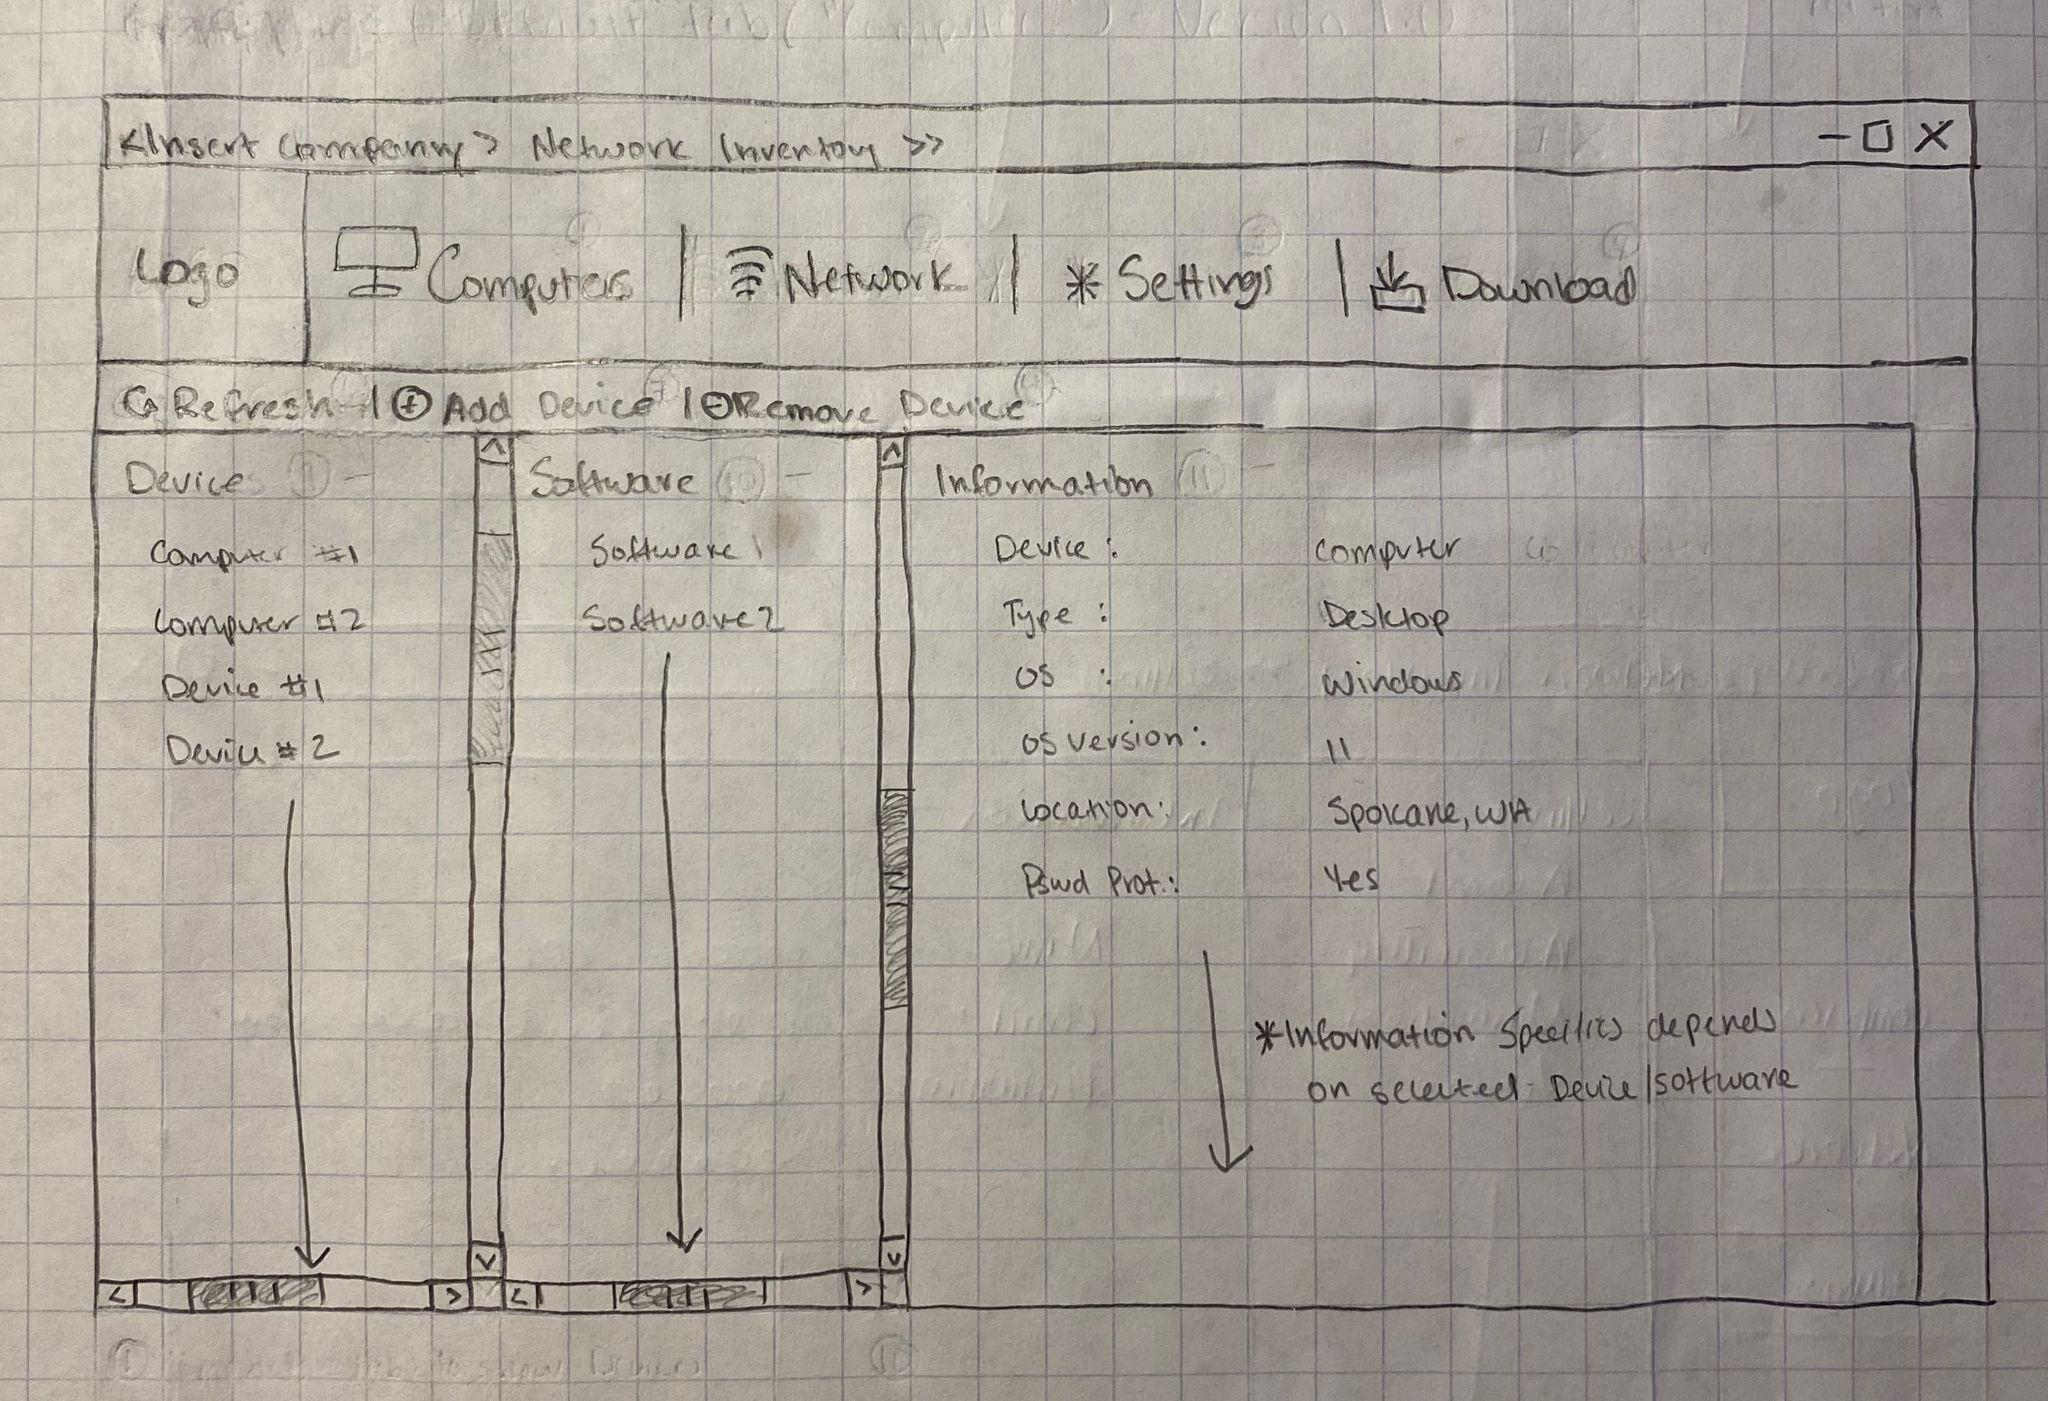 <Insert Company> Network Inventory >>
- □ X
Logo
Computers | Network | Settings | Download
Refresh | + Add Device | - Remove Device
Devices 9
Computer #1
Computer #2
Device #1
Device #2
Software 10
Software 1
Software 2
Information 11
Device: Computer
Type: Desktop
OS: Windows
OS Version: 11
Location: Spokane, WA
Pswd Prot.: Yes
*Information Specifics depends
on selected Device/software